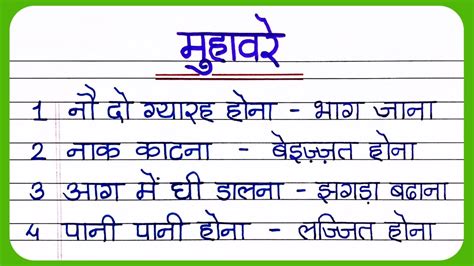 मुहावरे
1 नौ दो ग्यारह होना - भाग जाना
2 नाक काटना - बेइज़्ज़त होना
3 आग में घी डालना - झगड़ा बढाना
4 पानी पानी होना - लज्जित होना